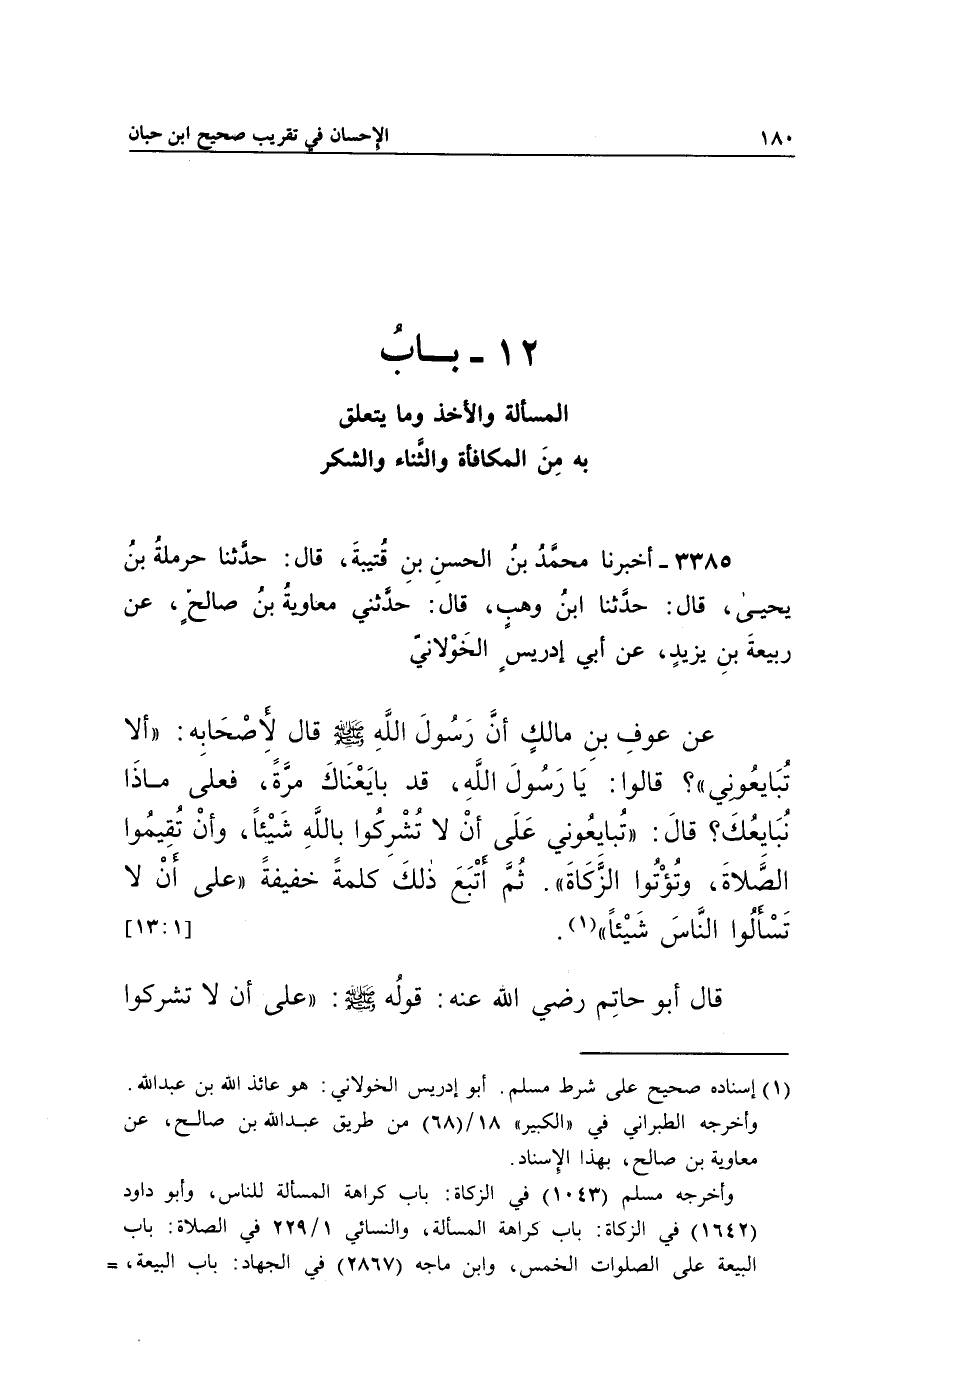 ١٨٠ الإحسان في تقريب صحيح ابن حبان
١٢ - بـــابُ
المسألة والأخذ وما يتعلق
به مِنَ المكافأة والثَّناء والشكر
٣٣٨٥ - أخبرنا محمَّدُ بنُ الحسنِ بنِ قُتيبةَ، قال: حدَّثنا حرملةُ بنُ
يحيـىٰ، قال: حدَّثنا ابنُ وهبٍ، قال: حدَّثني معاويةُ بنُ صالحٍ، عن
ربيعةَ بنِ يزيدٍ، عن أبي إدريسٍ الخَوْلانيّ
عن عوفِ بنِ مالكٍ أنَّ رَسُولَ اللَّهِ ﷺ قال لِأَصْحَابِه: «ألا
تُبَايعُونِي»؟ قالوا: يَا رَسُولَ اللَّهِ، قد بايَعْنَاكَ مرَّةً، فعلى مـاذَا
نُبَايِعُكَ؟ قالَ: «تُبايعُوني عَلَى أنْ لا تُشْرِكُوا باللَّهِ شَيْئاً، وأنْ تُقِيمُوا
الصَّلاةَ، وتُؤْتُوا الزَّكَاةَ». ثُمَّ أَتْبَعَ ذٰلكَ كلمةً خفيفةً «على أَنْ لا
تَسْأَلُوا النَّاسَ شَيْئاً»(١). [١٣:١]
قال أبو حاتِم رضي الله عنه: قولُه ﷺ: «على أن لا تشركوا
(١) إسناده صحيح على شرط مسلم. أبو إدريس الخولاني: هو عائذ الله بن عبدالله.
وأخرجه الطبراني في «الكبير» ١٨/(٦٨) من طريق عبـدالله بن صالـح، عن
معاوية بن صالح، بهذا الإسناد.
وأخرجه مسلم (١٠٤٣) في الزكاة: باب كراهة المسألة للناس، وأبو داود
(١٦٤٢) في الزكاة: باب كراهة المسألة، والنسائي ٢٢٩/١ في الصلاة: باب
البيعة على الصلوات الخمس، وابن ماجه (٢٨٦٧) في الجهاد: باب البيعة، =